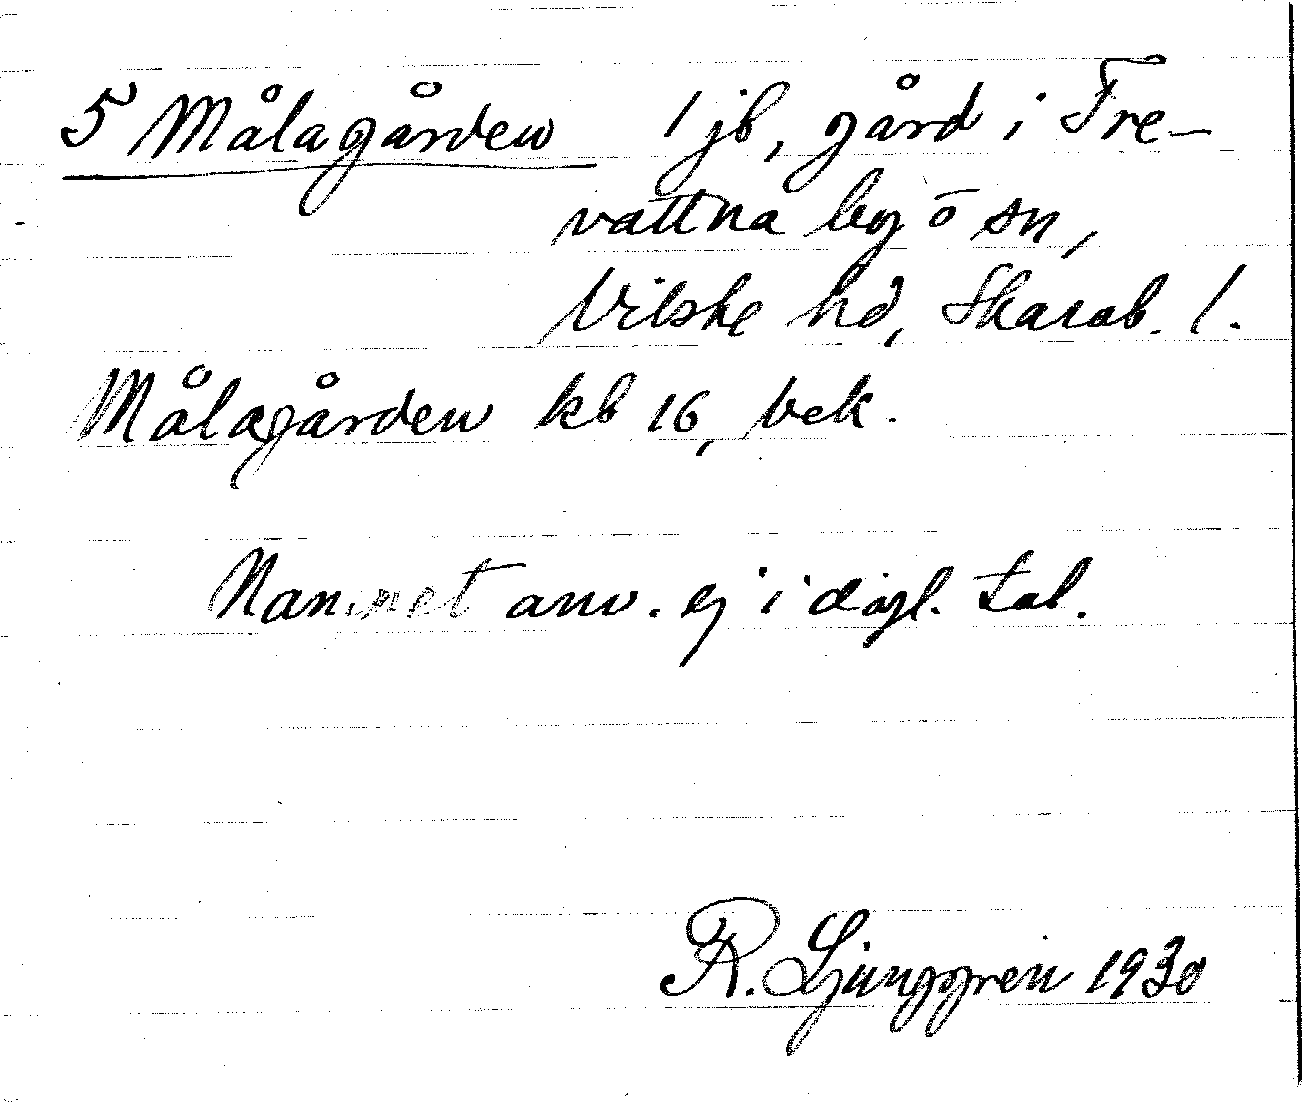 5 Målagården 1 jb, gård i Fre-
vattna by o sn,
Vilske hd, Skarab. l.
Målagården kb 16, bek.
Namnet anv. ej i dagl. tal.
R. Ljunggren 1930